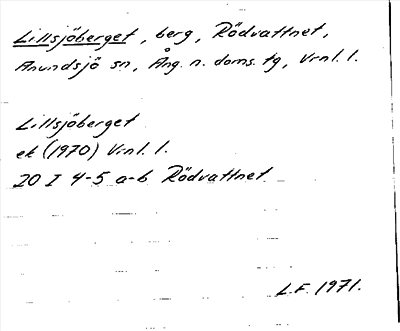 Lillsjöberget, berg, Rödvattnet,
Anundsjö sn, Ång. n. doms. tg, Vrnl. l.
Lillsjöberget
ek (1970) Vrnl. l.
20 I 4-5 a-b Rödvattnet
L.F. 1971.